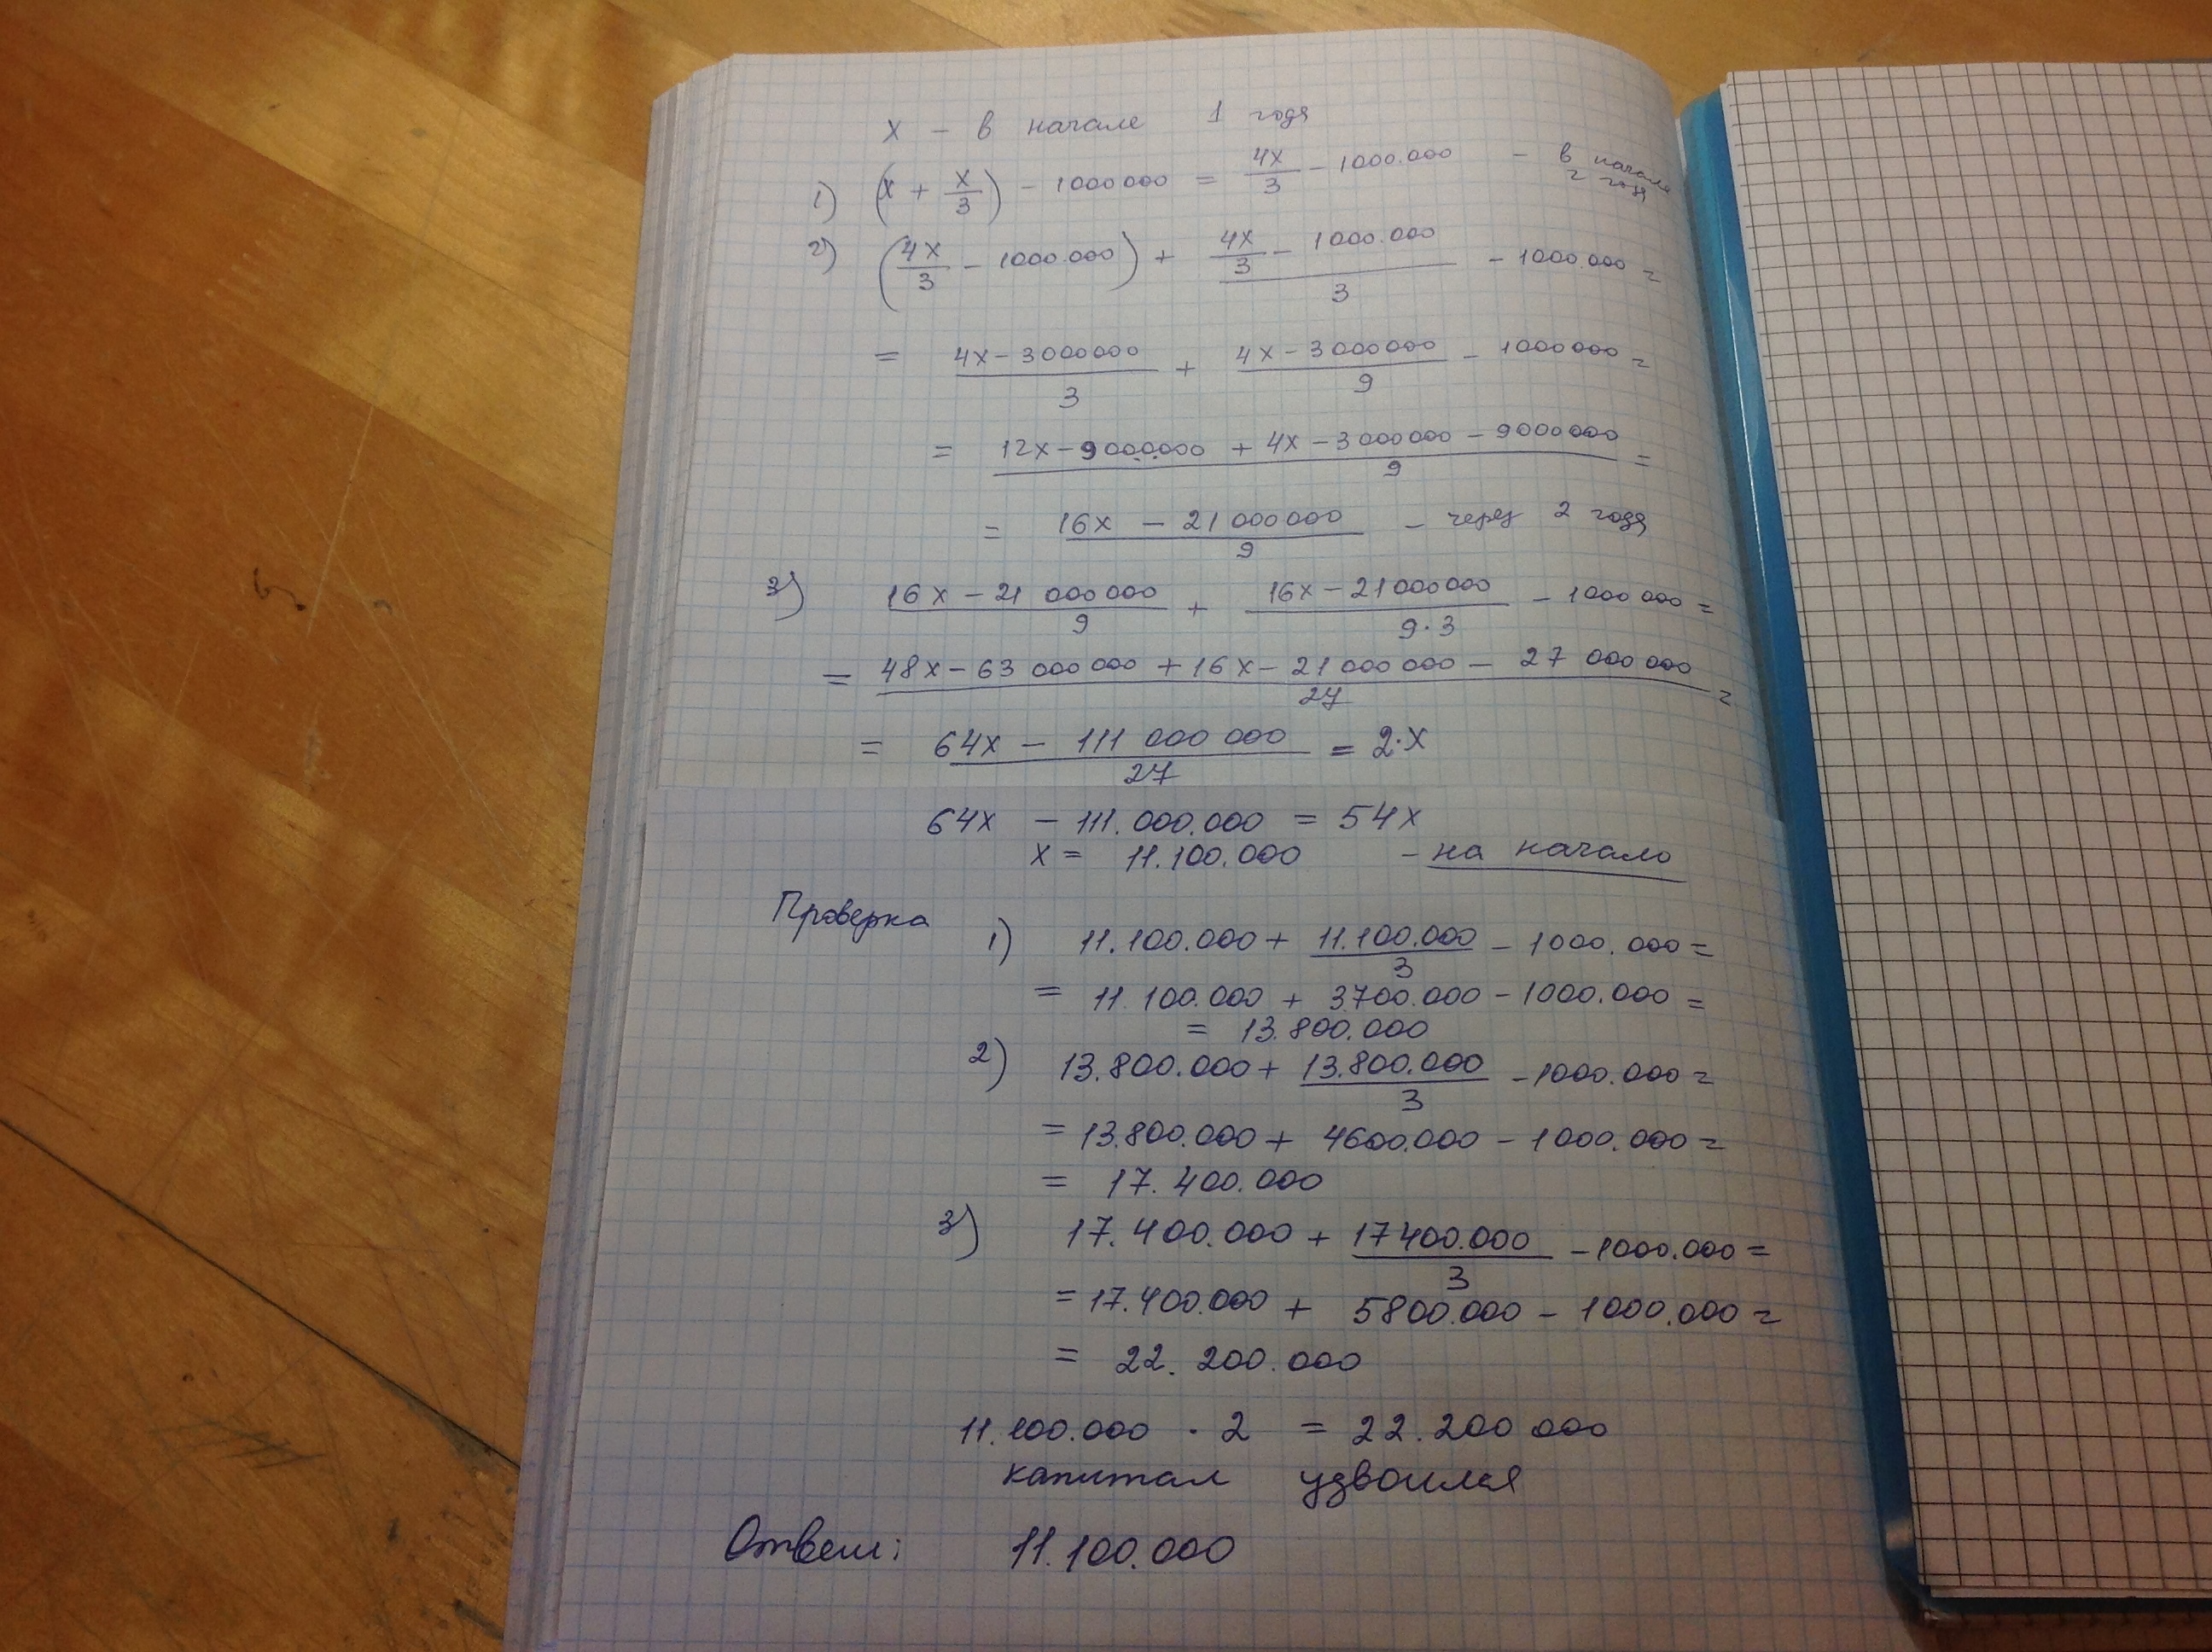 x – в начале 1 года
1) (x + x/3) – 1000000 = 4x/3 – 1000.000 – в начале 2 года
2) (4x/3 – 1000.000) + (4x/3 – 1000.000)/3 – 1000.000 =
= (4x – 3000000)/3 + (4x – 3000000)/9 – 1000000 =
= (12x – 9000.000 + 4x – 3000000 – 9000000)/9 =
= (16x – 21000000)/9 – через 2 года
3) (16x – 21 000000)/9 + (16x – 21000000)/(9·3) – 1000000 =
= (48x – 63 000000 + 16x – 21000000 – 27 000000)/27 =
= (64x – 111 000 000)/27 = 2·x
64x – 111.000.000 = 54x
x = 11.100.000 – на начало
Проверка
1) 11.100.000 + 11.100.000/3 – 1000.000 =
= 11.100.000 + 3700.000 – 1000.000 =
= 13.800.000
2) 13.800.000 + 13.800.000/3 – 1000.000 =
= 13.800.000 + 4600.000 – 1000.000 =
= 17.400.000
3) 17.400.000 + 17400.000/3 – 1000.000 =
= 17.400.000 + 5800.000 – 1000.000 =
= 22.200.000
11.100.000 · 2 = 22.200 000
капитал удвоился
Ответ: 11.100.000